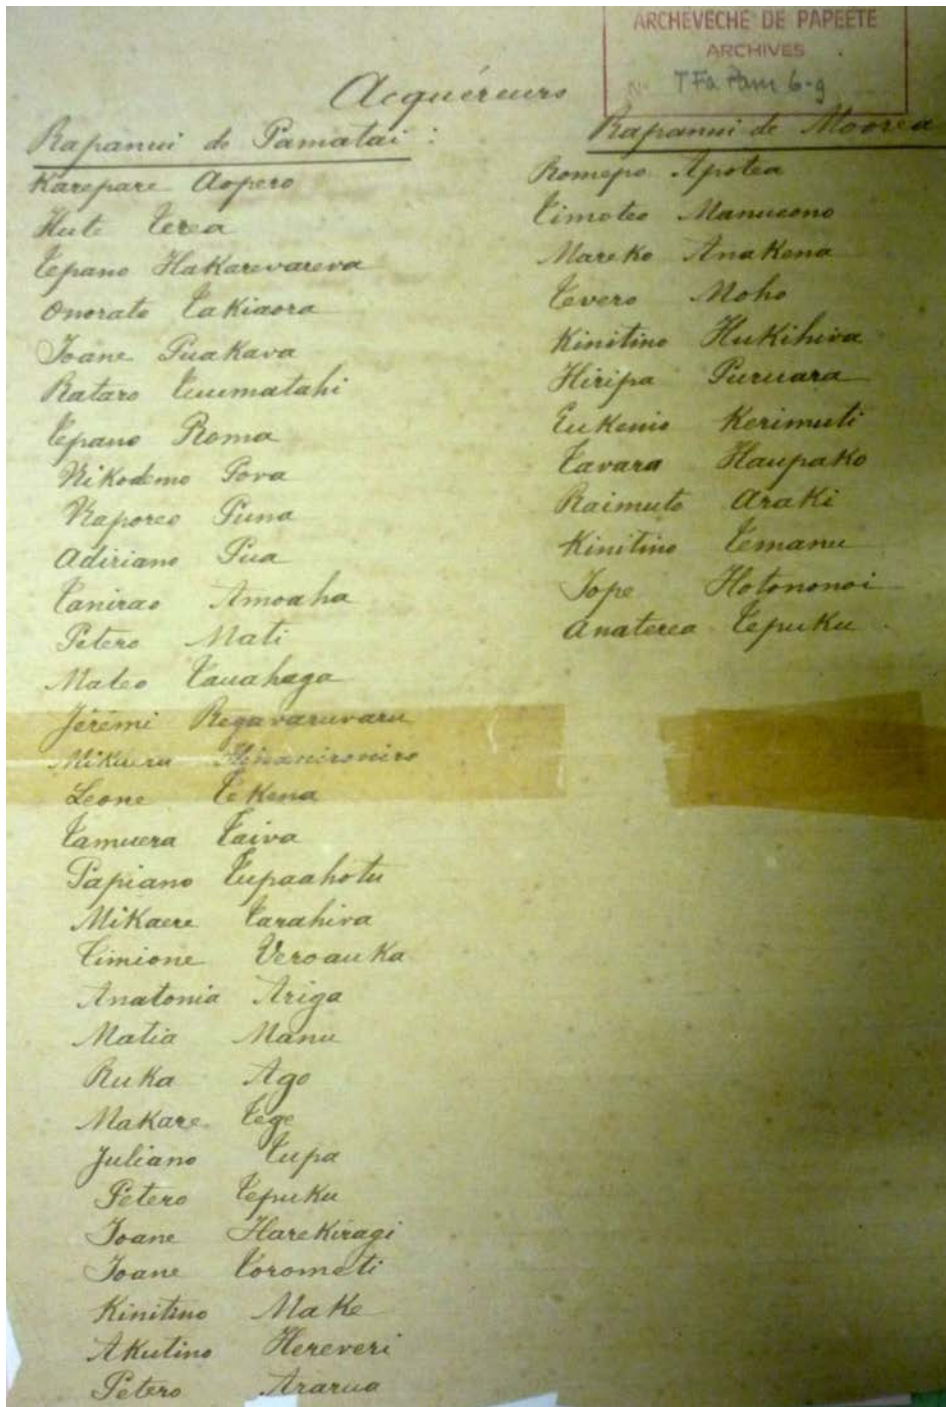 ARCHEVECHE DE PAPEETE
ARCHIVES
N° TFa Pam 6-g
Acquéreurs
Rapanui de Pamatai :
Karepare Aopero
Hute Terea
Tepano Hakarevareva
Onorato Takiaora
Ioane Puakava
Rataro Tuumatahi
Tepano Roma
Nikodemo Pova
Kaporeo Puna
Adiriano Pua
Tanirao Amoaha
Petero Mati
Mateo Tauahaga
Jérémi Regavaruvaru
Mikueru Hinanironiro
Leone Te Kena
Tamuera Taiva
Papiano Tupaahotu
Mikaere Tarahiva
Timione Veroauka
Anatonia Ariga
Matia Manu
Ruka Ago
Makare Tege
Juliano Tupa
Petero Tepuku
Ioane Harekiragi
Ioane Torometi
Kinitino Make
Akutino Hereveri
Petero Ararua
Rapanui de Moorea
Romepo Apotea
Timoteo Manueono
Mareko Anakena
Tevero Moho
Kinitino Hukihiva
Hiripa Puruara
Eukenio Kerimuti
Tavara Haupako
Raimuto Araki
Kinitino Temanu
Iope Hotononoi
Anaterea Tepuku